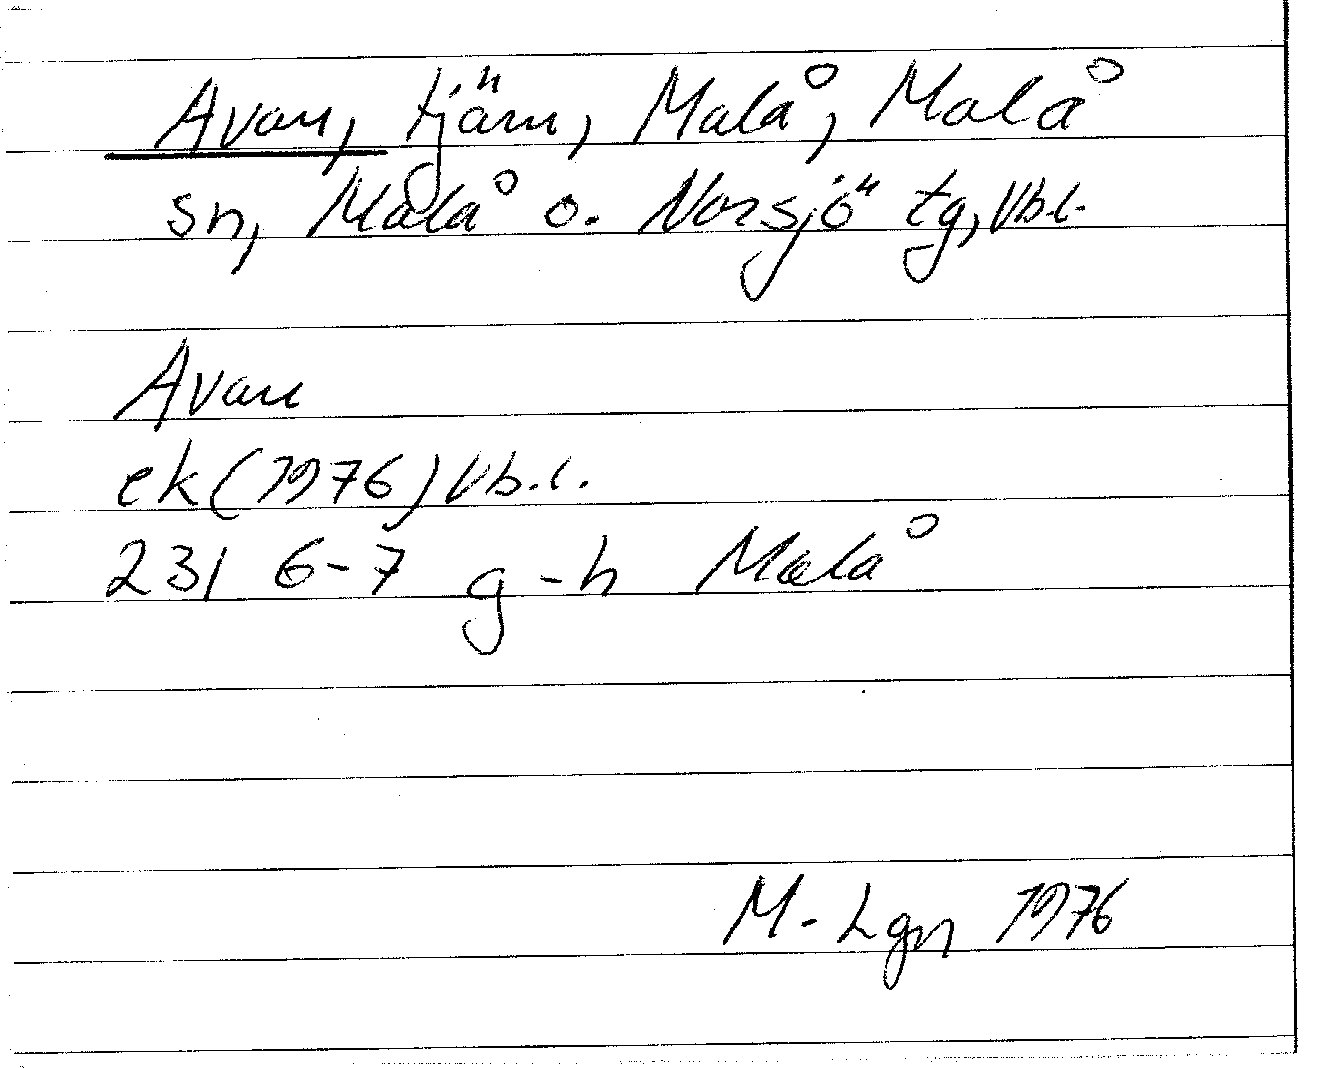 Avan, tjärn, Malå, Malå
sn, Malå o. Norsjö tg, Vb.l.
Avan
ek (1976) Vb.l.
23I 6-7 g-h Malå
M-Lgn 1976